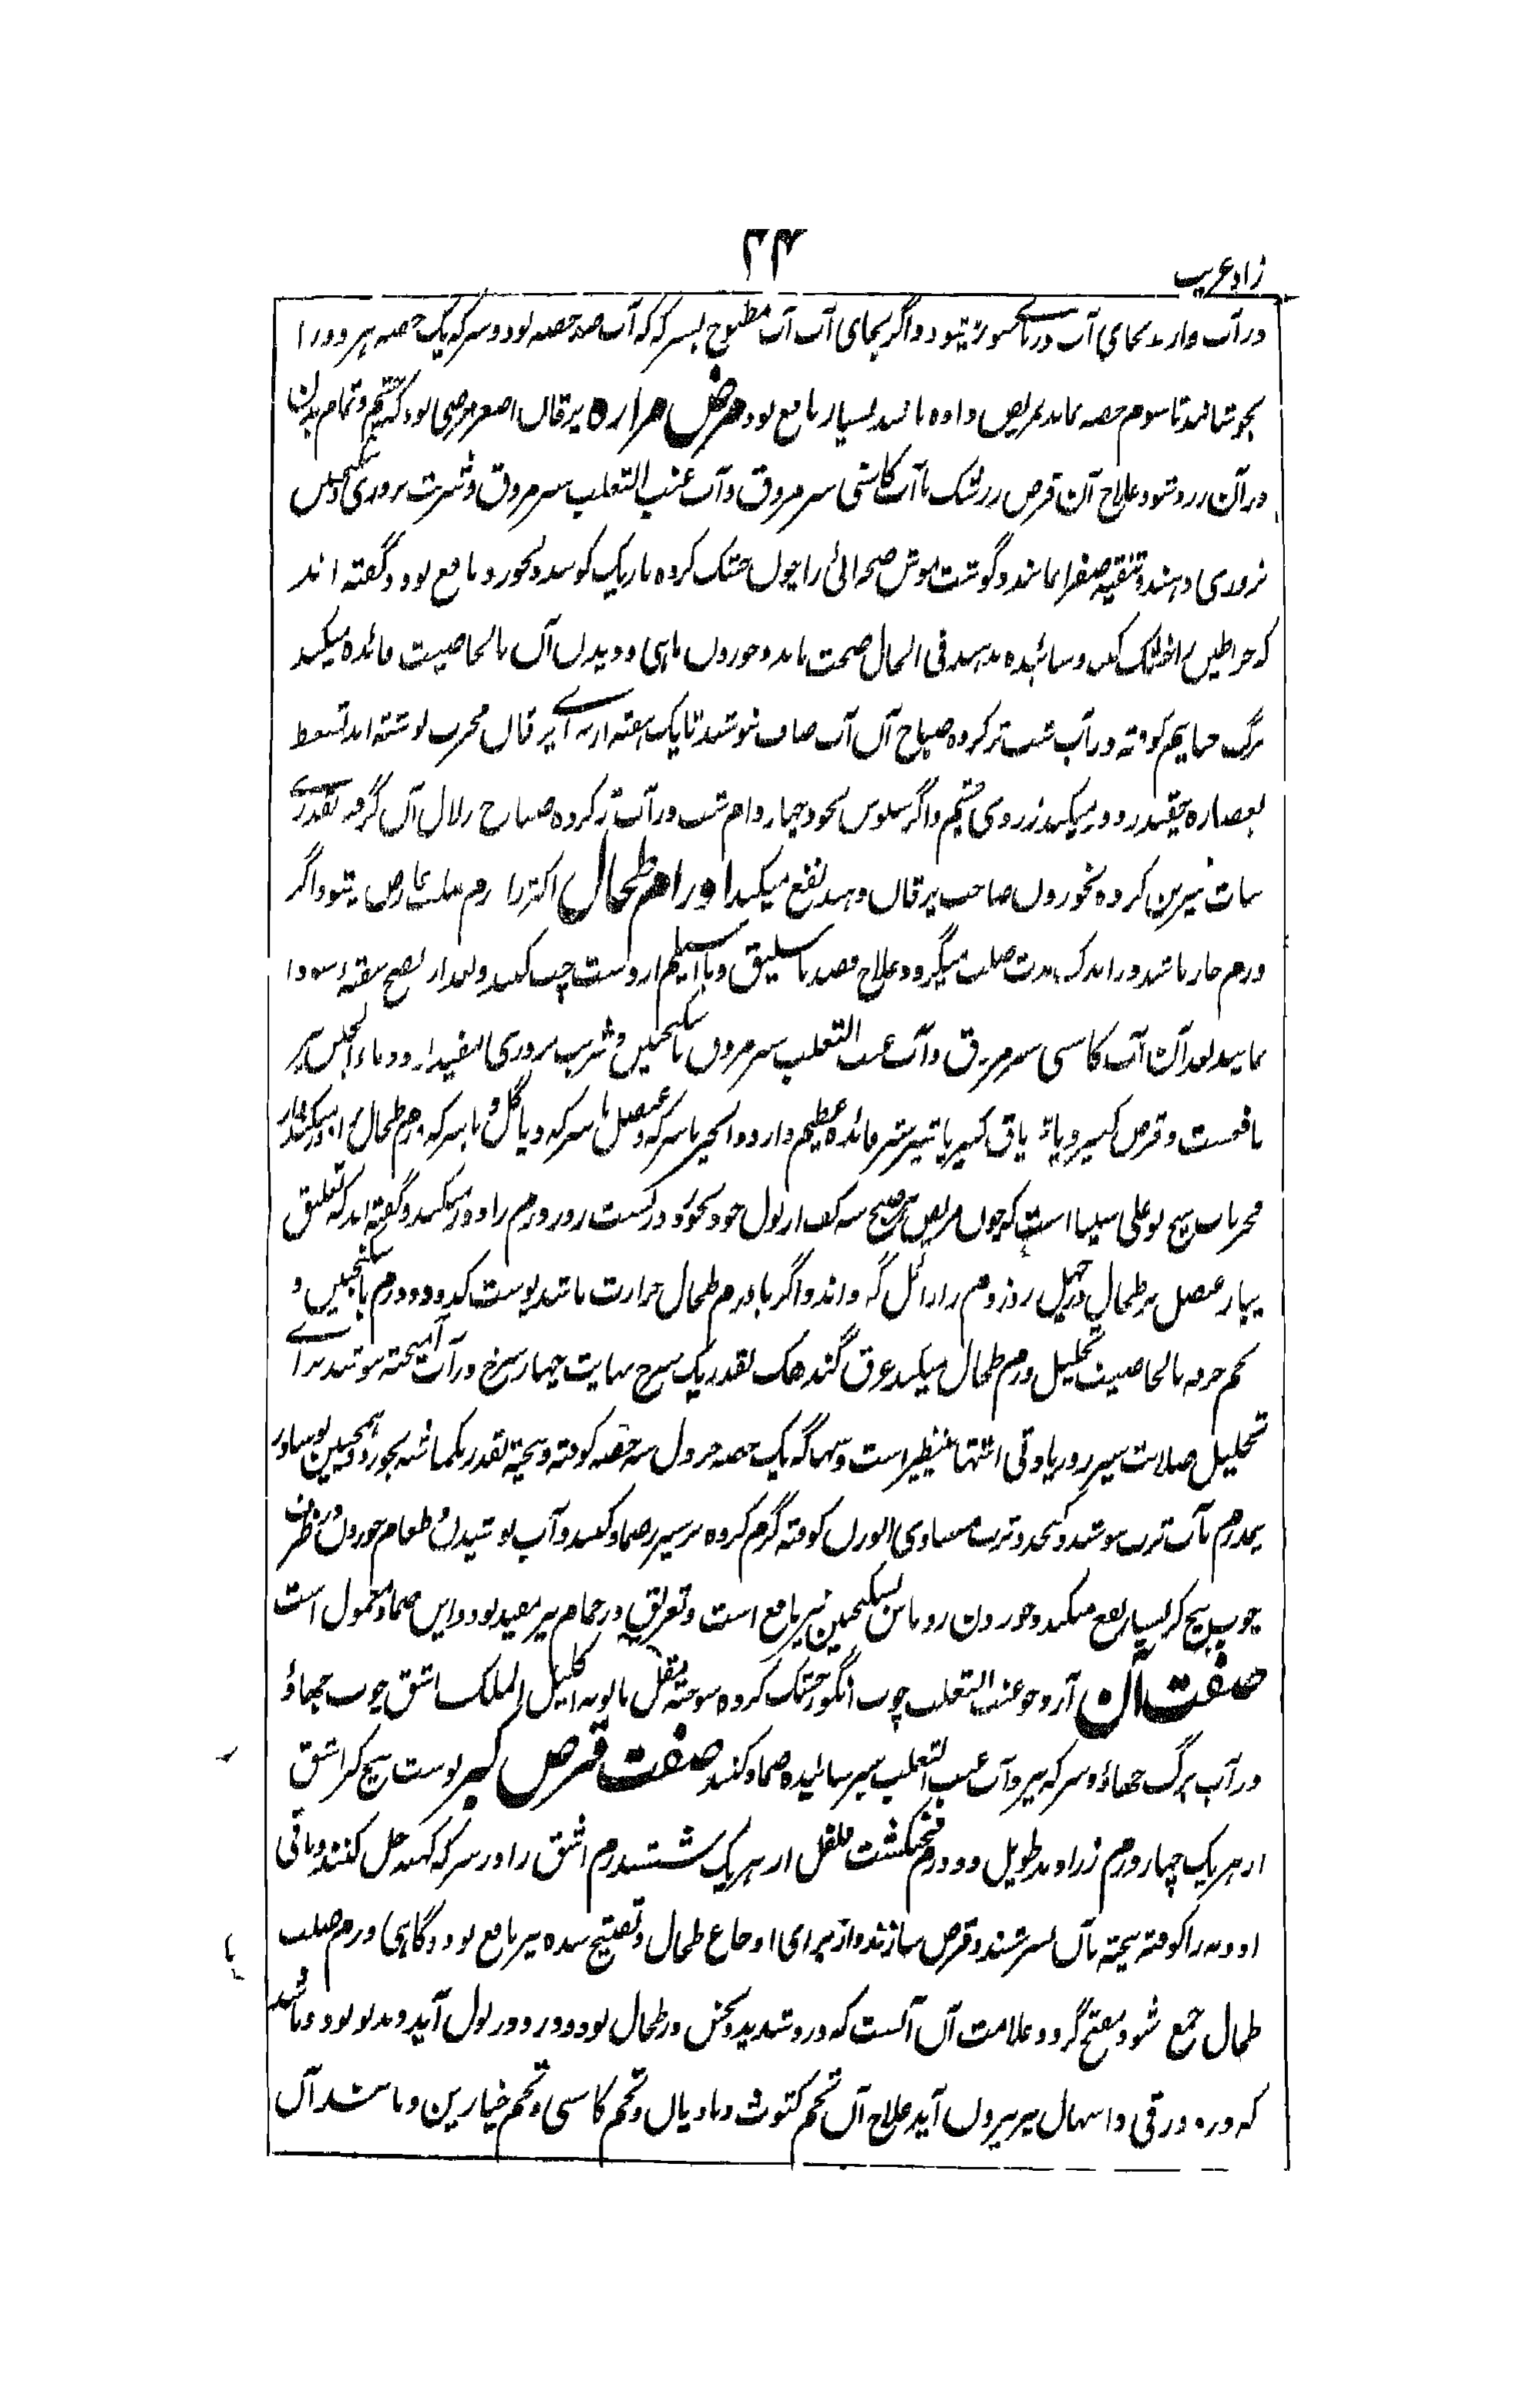 ۲۴
زاد غریب
در آب دارند بجای آب دریای شور میشود و اگر بجای آب آب مطبوخ بسرکه که آب صد حصه بود و سرکه یک حصه هر دو را
بجوشانند تا سوم حصه بماند بمریض داده باشند بسیار نافع بود مرض مراره یرقان اصفر مرضی بود که چشم و تمام بدن
در آن زرد شود علاج آن قرص زرشک با آب کاسنی سبز مروق و آب عنب الثعلب سبز مروق و شربت بزوری سکنجبین
بزوری دهند و تنقیه صفرا نمایند و گوشت موش صحرائی را چون خشک کرده باریک کوبند و بخورد نافع بود و گفته اند
که خراطین را خشک کنند و سائیده بدهند فی الحال صحت یابد و خوردن ماهی و دیدن آن بالخاصیت فائده میکند
برگ حنا نیم کوفته در آب شب تر کرده صباح آن آب صاف نوشند تا یک هفته از برای یرقان مجرب نوشته اند تسعط
بعصاره چقندر دور میکند زردی چشم و اگر سبوس نخود چهار دام شب در آب تر کرده صباح زلال آن گرفته بقدرے
نبات شیرین کرده بخوردن صاحب یرقان دهند نفع میکند اورام طحال اکثر ورم صلب عارض میشود و اگر
ورم حار باشد در اندک مدت صلب میگردد علاج فصد باسلیق و یا اسیلم از دست چپ کنند و بعد از نضج تنقیه سودا
نمایند بعد آن آب کاسنی سبز مروق و آب عنب الثعلب سبز مروق با سکنجبین و شربت بزوری مفید آرد و ماء الجبن نیز
نافعست و قرص کبیر و یا تریاق کبیر یا شیر شتر فائده عظیم دارد و انجیر با سرکه و عنصل با سرکه و یا گل و با سرکه ورم طحال را دور میکند از
مجربات شیخ بو علی سینا است که چون مریض هر صبح سه کف از بول خود بخورد در بیست روز ورم را دور میکند و گفته اند که تعلیق
پیاز عنصل بر طحال در چهل روز ورم را زائل گرداند و اگر با ورم طحال حرارت باشد پوست کدو دو درم با سکنجبین و
تخم خرفه بالخاصیت تحلیل ورم طحال میکند عرق گندهک بقدر یک سرخ نهایت چهار سرخ در آب آمیخته نوشند برائے
تحلیل صلابت سپرز و زیادتی اشتها بینظیر است و سهاگه یک حصه خردل سه حصه کوفته و بیخته بقدر یکماشه بخورد و همچنین نوسادر
یکدرم با آب ترب نوشند و کنجد و ترب مساوی الوزن کوفته گرم کرده بر سپرز ضماد کنند و آب نوشیدن و طعام خوردن در ظرف
چوب بیخ کبر بسیار نفع میکند و خوردن روناس بسکنجبین نیز نافع است و تعریق در حمام نیز مفید بود و این ضماد معمول است
صفت آن آرد جو عنب الثعلب چوب انگور خشک کرده سوخته مقل بابونه اکلیل الملک اشق چوب جهاؤ
در آب برگ جهاؤ و سرکه سبز و آب عنب الثعلب سبز سائیده ضماد کنند صفت قرص کبر پوست بیخ کبر اشق
از هر یک چهار درم زراوند طویل دو درم فنجنکشت فلفل از هر یک شش درم اشق را در سرکه کهنه حل کنند و باقی
ادویه را کوفته بیخته بآن بسرشند و قرص سازند و از برای اوجاع طحال و تفتیح سده نیز نافع بود و گاهی ورم صلب
طحال جمع شود و منفتح گردد و علامت آن آنست که درد شدید و نخس در طحال بود و درد در بول آید و بدبو بود و باشد
که درد در قی و اسهال نیز بیرون آید علاج آن تخم کشوث و بادیان و تخم کاسنی و تخم خیارین و مانند آن